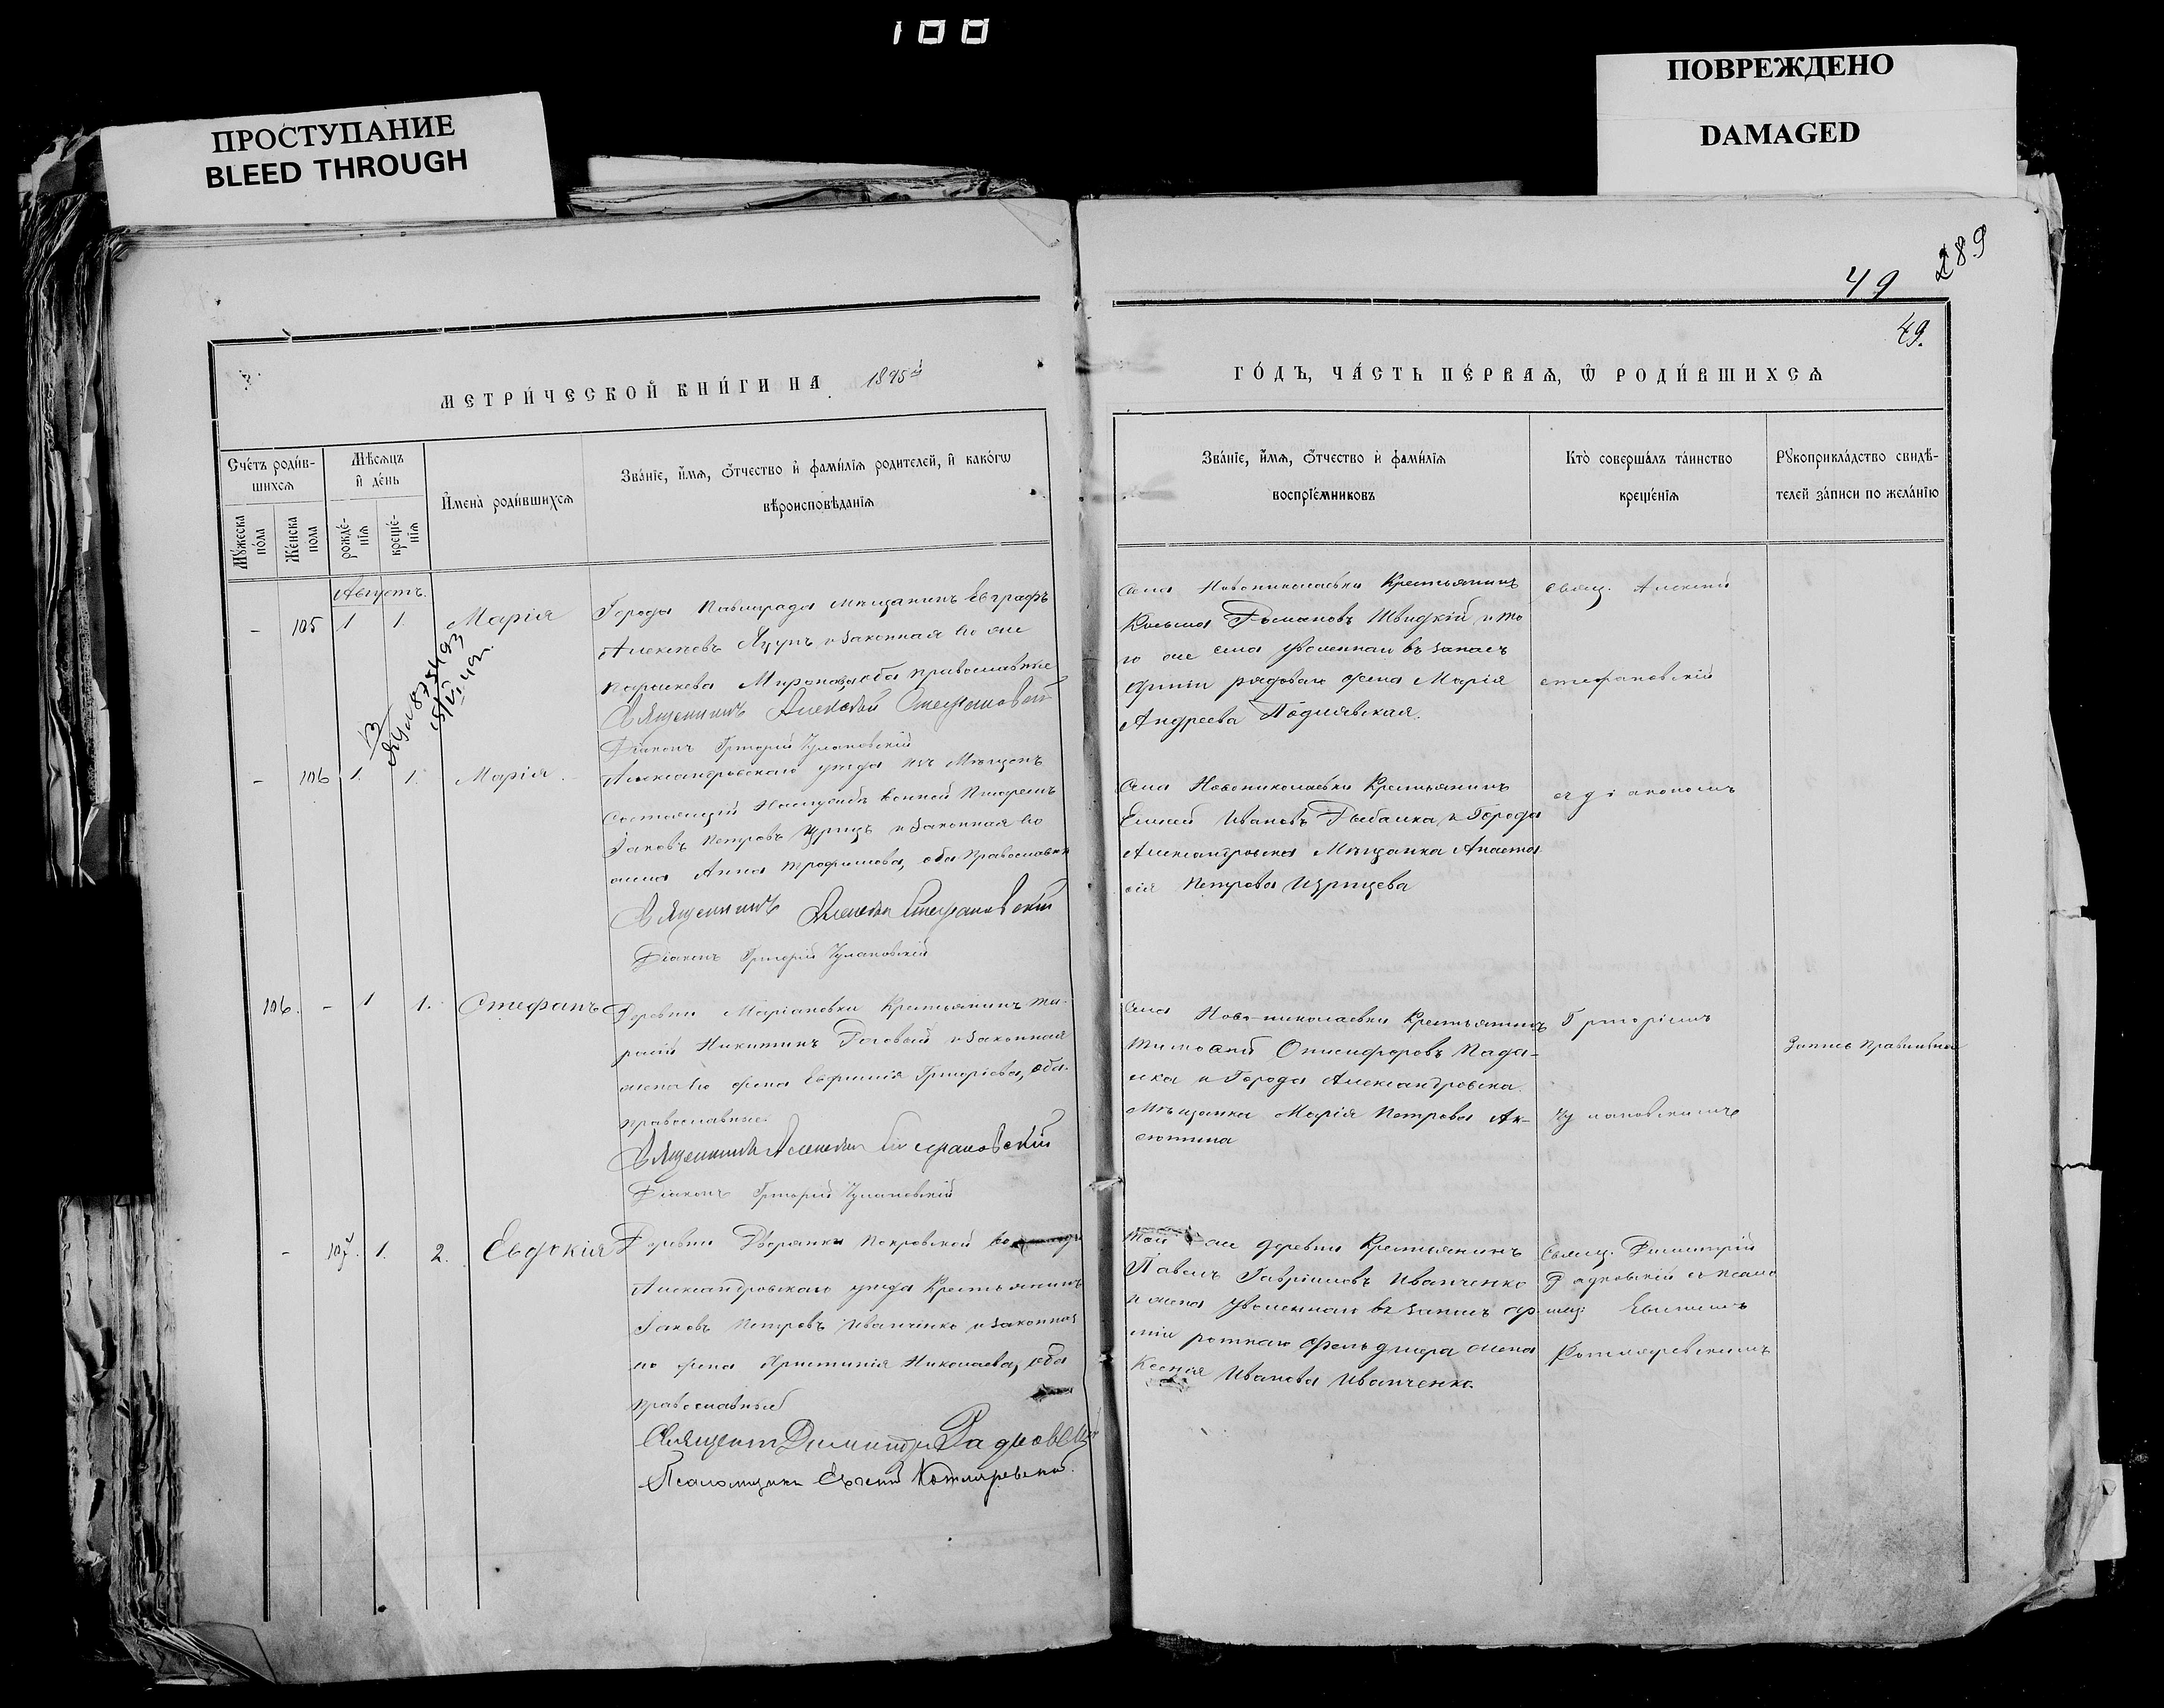 100
ПРОСТУПАНИЕ
BLEED THROUGH
ПОВРЕЖДЕНО
DAMAGED
289
49
49.
МЕТРИ́ЧЕСКОЙ КНИ́ГИ НА 1895й
ГО́ДЪ, ЧА́СТЬ ПЕ́РВАѦ, Ѿ РОДИ́ВШИХСѦ
Сче́тъ роди́в-
шихсѧ
Мꙋ́жеска по́ла
Же́нска пола
Мѣ́сѧцъ и҆ де́нь
рожде́-нїѧ
креще́-нїѧ
И҆мена̀ роди́вшихсѧ
Зва́нїе, и҆́мѧ, ѻ҆́тчество и҆ фами́лїѧ родителей, и҆ како́гѡ
вѣроисповѣ́данїѧ
Зва́нїе, и҆́мѧ, ѻ҆́тчество и҆ фами́лїѧ
воспрїе́мниковъ
Кто̀ соверша́лъ та́инство
креще́нїѧ
Рꙋкоприкла́дство свидѣ́-
телей за́писи по жела́нїю
Августъ.
- 105 1 1. Марія
Города Павлограда мѣщанинъ Евграфъ
Алексѣевъ и законная его же
Параскева Миронова, оба православные
Священникъ Алексѣй Стефановскій
Діаконъ Григорій Чулановскій
Села Новониколаевки Крестьянинъ
Козьма Романовъ Швидкій и то
го же села уволеннаго въ запасъ
арміи рядоваго жена Марія
Андреева
Свящ. Алексій
Стефановскій
- 106 1. 1. Марія.
Александровскаго уѣзда изъ Мѣщанъ
Іаковъ Петровъ и законная его
жена Анна Трофимова, оба православн
Священникъ Алексѣй Стефановскій
Діаконъ Григорій Чулановскій
Села Новониколаевки Крестьянинъ
Елисей Ивановъ Рыбалка и Города
Александровска Мѣщанка Анаста
сія Петрова
съ діакономъ
106. - 1 1. Стефанъ
Деревни Маріановки Крестьянинъ Та-
расій Никитинъ Роговый и законная
жена Евфимія Григоріева, оба
православные.
Священникъ Алексѣй Стефановскій
Діаконъ Григорій Чулановскій
Села Ново-николаевки Крестьянинъ
Тимофей Онисифоровъ Пада-
лка и Города Александровска
Мѣщанка Марія Петрова Ак-
сютина
Григоріемъ
Чулановскимъ
Запись правильна
- 107. 1. 2. Евдокія
Деревни Дворянки Покровской
Александровскаго уѣзда Крестьянинъ
Іаковъ Петровъ Иванченко и законная
его жена Христинія Николаева, оба
православные
Священникъ Димитрій Радковскій
Псаломщикъ Евгеній Котляревскій.
Той же деревни Крестьянинъ
Павелъ Гавріиловъ Иванченко
и уволеннаго въ запасъ ар-
міи ротнаго фельдшера жена
Ксенія Иванова Иванченко.
Свящ. Димитрій
Радковскій съ псало
мщ. Евгеніемъ
Котляревскимъ